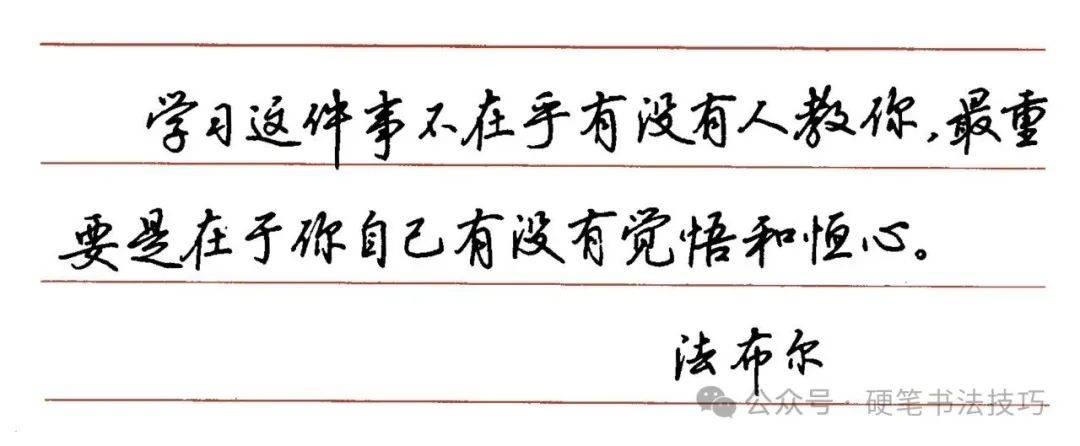 学习这件事不在乎有没有人教你,最重
要是在于你自己有没有觉悟和恒心。
法布尔
公众号·硬笔书法技巧